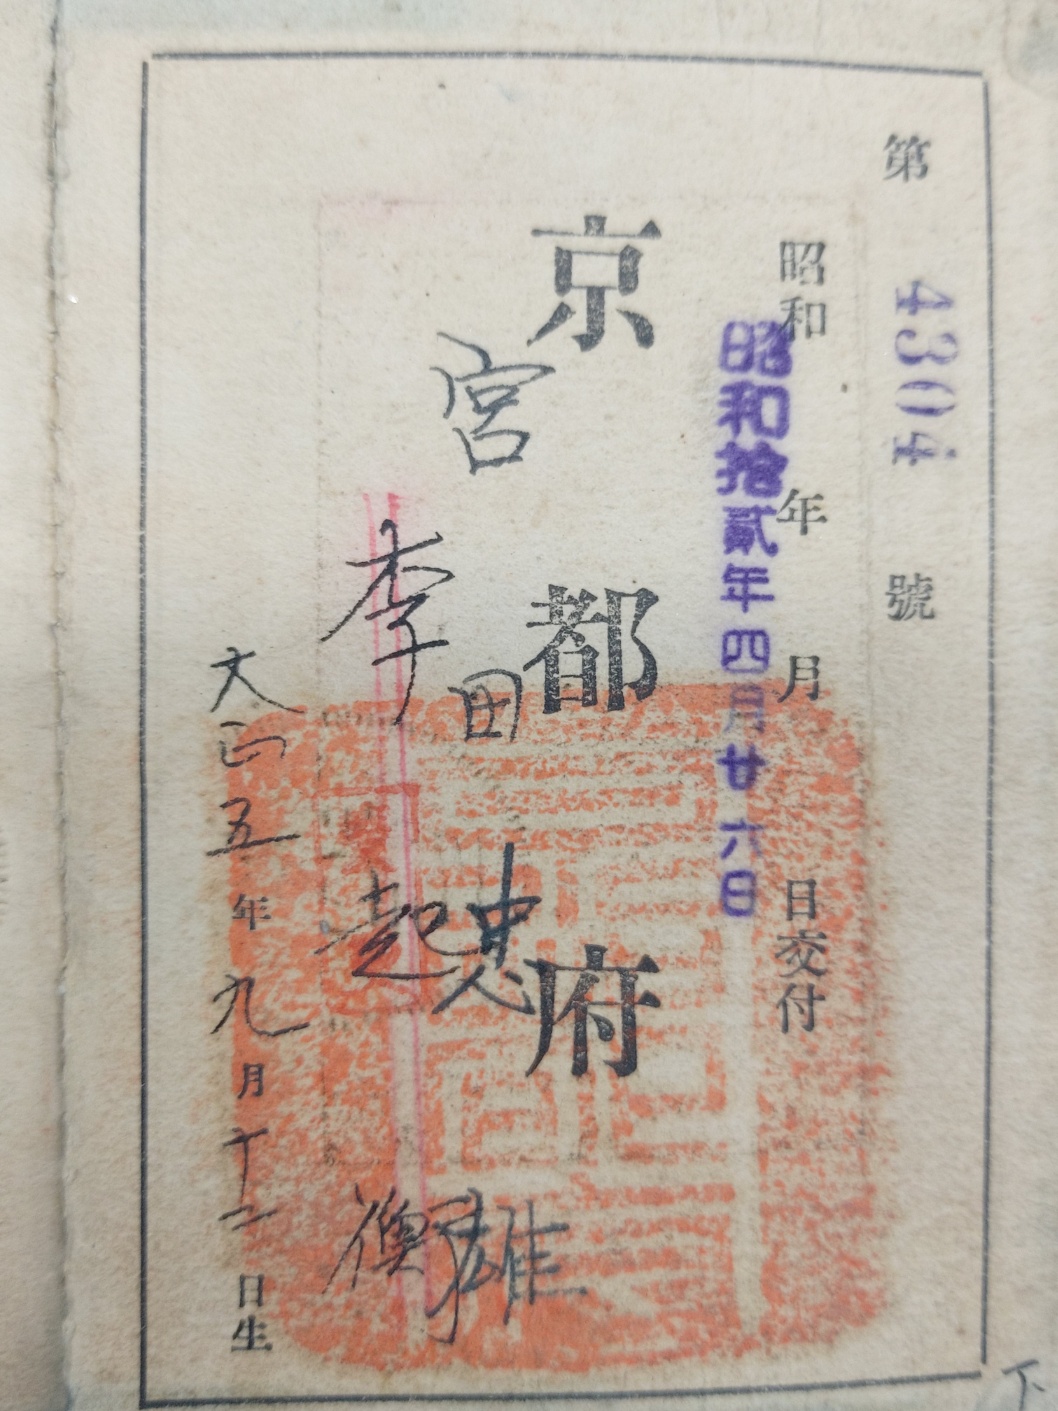 第 4304 號
昭和 年 月 日交付
昭和拾貳年四月廿六日
京都府
宮田忠雄
李起衡
大正五年九月十二日生
下